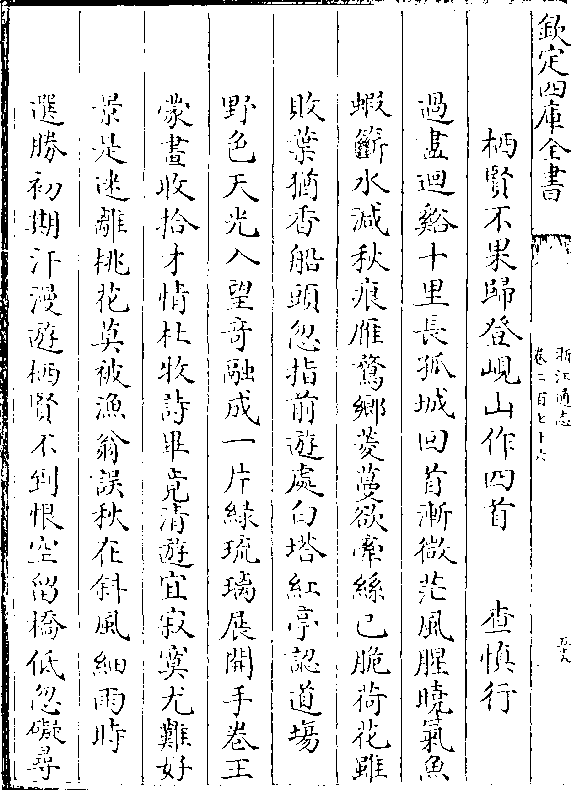 欽定四庫全書
浙江通志
卷二百七十六
栖賢不果歸登峴山作四首　查慎行
過盡迴谿十里長孤城回首漸微茫風腥曉氣魚
蝦籪水減秋痕雁鶩鄉菱蔓欲牽絲已脆荷花雖
敗葉猶香船頭忽指前遊處白塔紅亭認道場
野色天光入望奇融成一片綠琉璃展開手卷王
蒙畫收拾才情杜牧詩畢竟清遊宜寂寞尤難好
景是迷離桃花莫被漁翁誤秋在斜風細雨時
選勝初期汗漫遊栖賢不到恨空留橋低忽礙尋